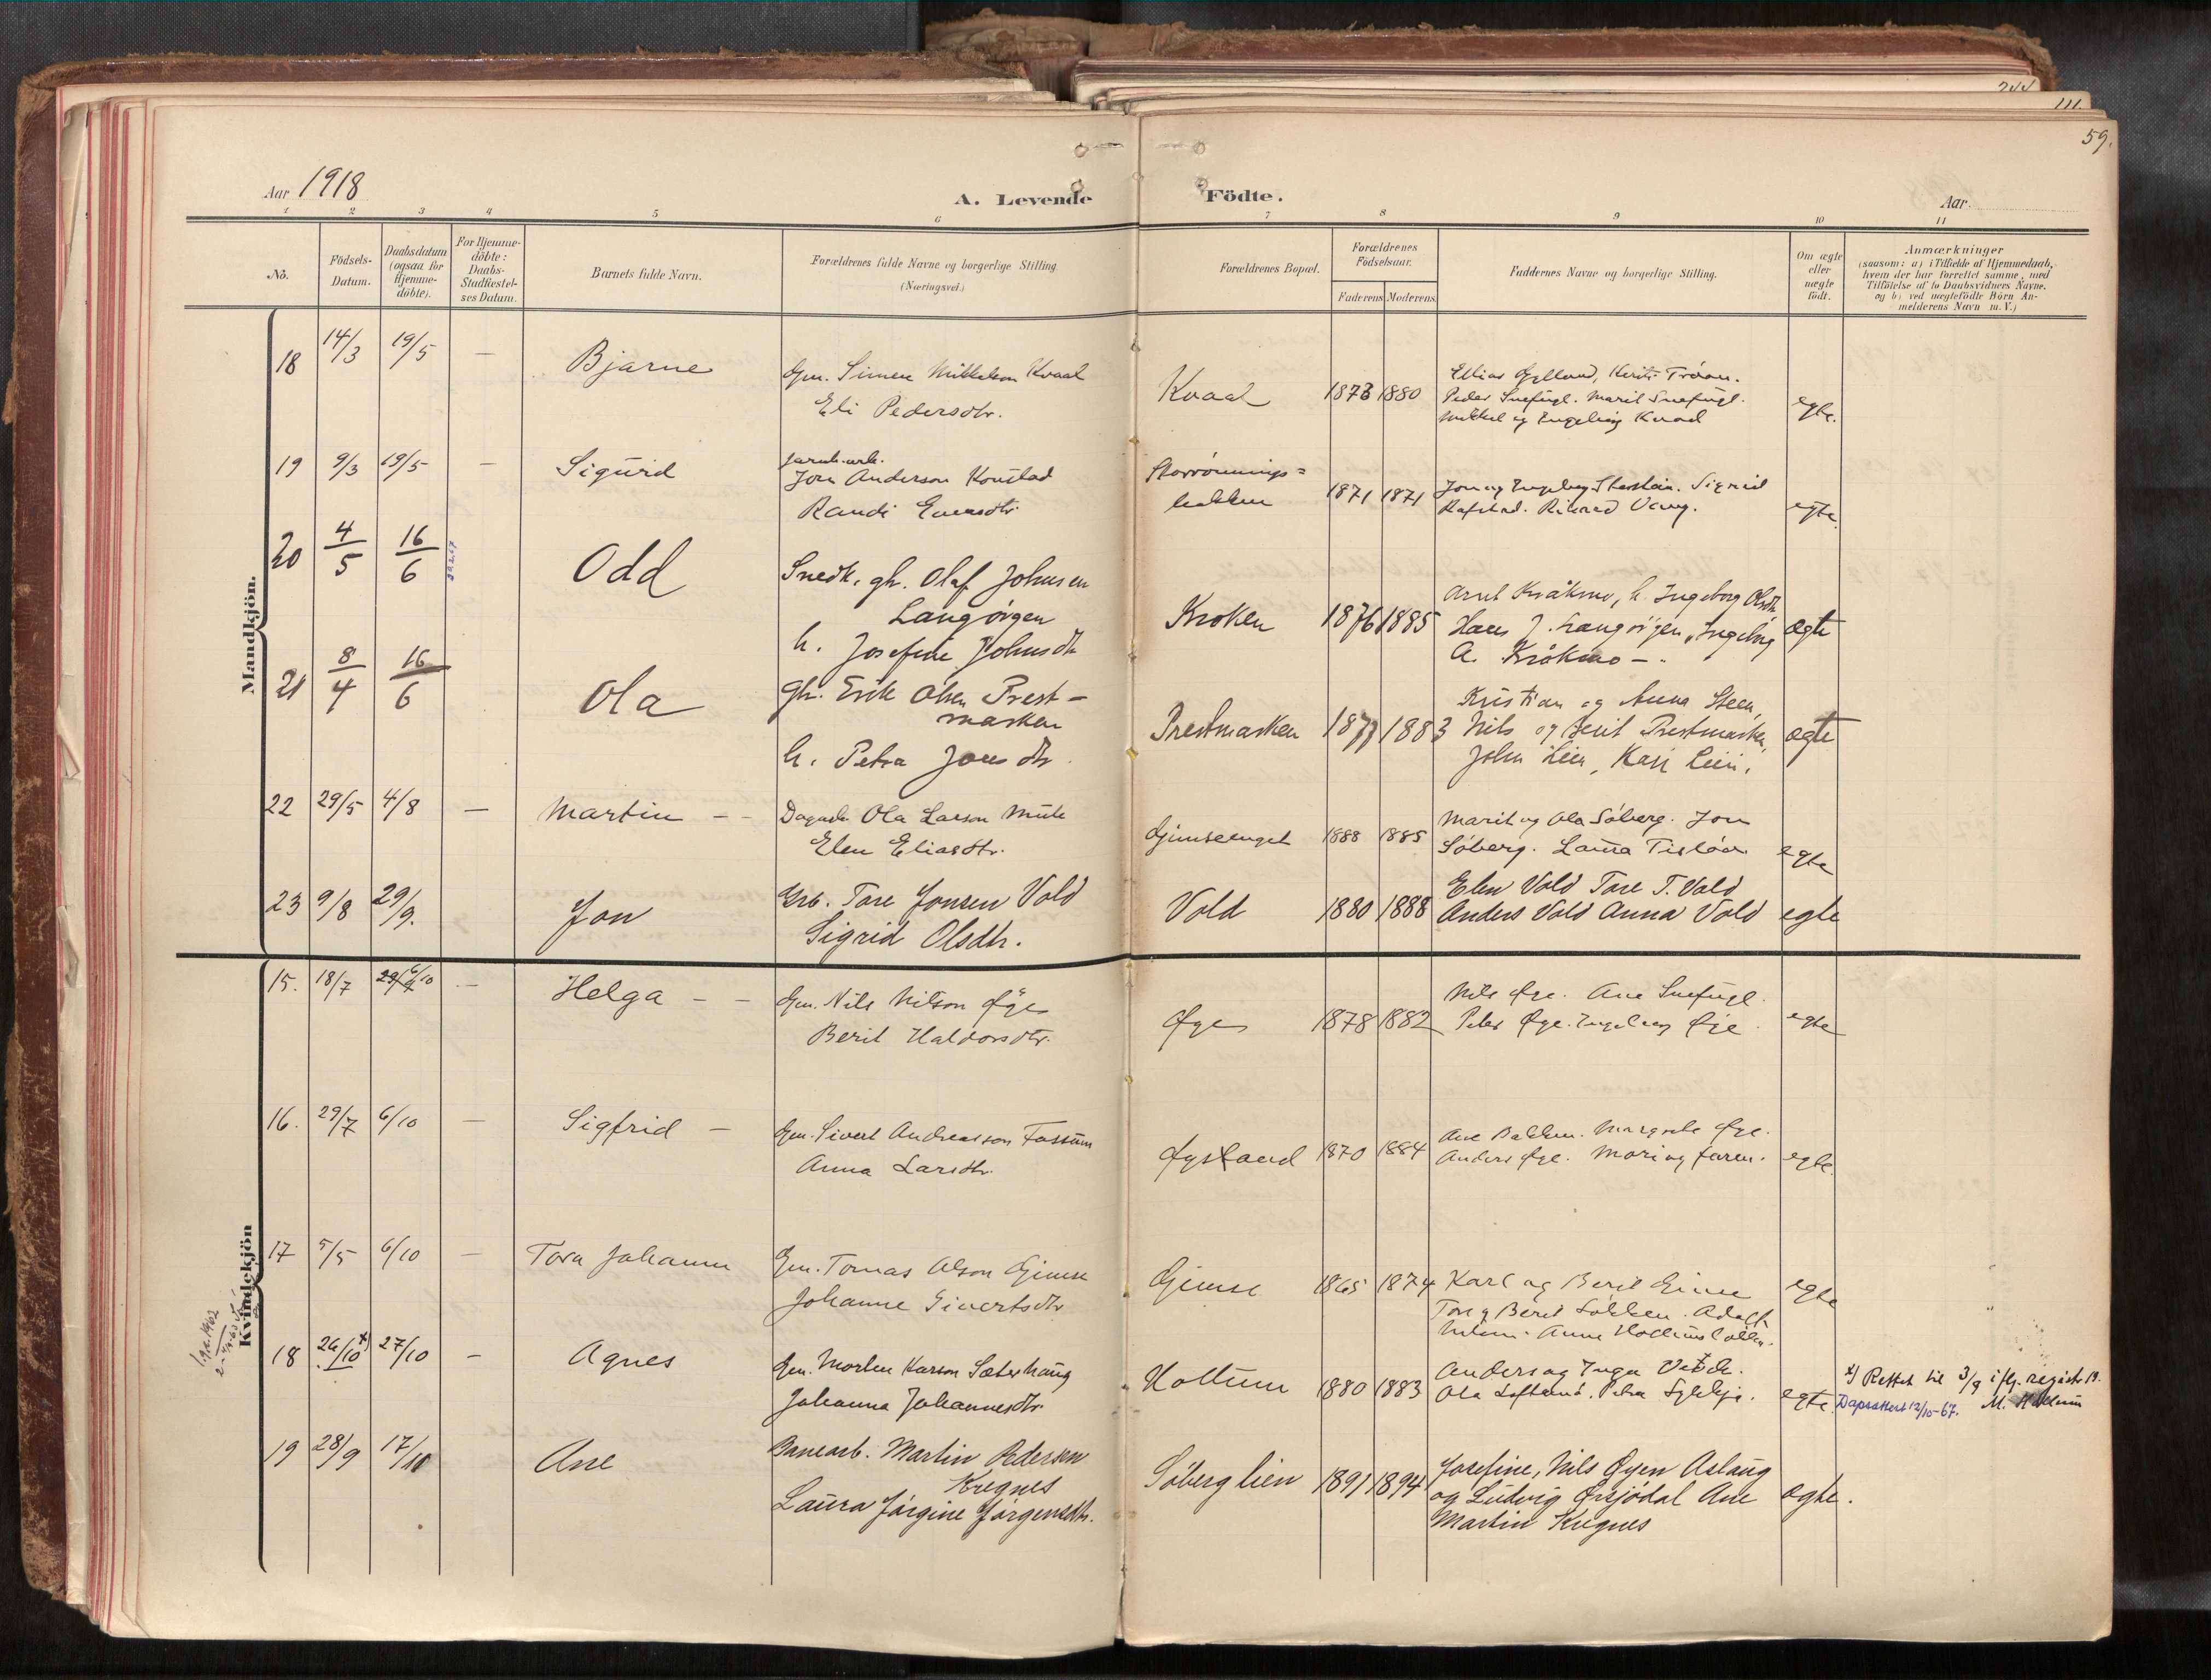 244
111.
59.
Aar 1918
A. Levende Födte.
Aar
1 2 3 4 5 6 7 8 9 10 11
No.
Födsels-Datum.
Daabsdatum (ogsaa for Hjemme-döbte).
For Hjemme-döbte: Daabs-Stadfæstel-ses Datum.
Barnets fulde Navn.
Forældrenes fulde Navne og borgerlige Stilling (Næringsvei.)
Forældrenes Bopæl.
Forældrenes Födselsaar.
Faderens Moderens
Faddernes Navne og borgerlige Stilling.
Om ægte eller uægte födt.
Anmærkninger
(saasom: a) i Tilfælde af Hjemmedaab, hvem der har forrettet samme, med Tilföielse af to Daabsvidners Navne, og b) ved uægtefödte Börn An-melderens Navn m. V.)
Mandkjön.
18 14/3 19/5 — Bjarne
Gm. Simen Mikkelsen Kvaal
Eli Pedersdtr.
Kvaal 1873 1880
Peder Snefugl. Marit Snefugl.
Mikkel og Ingebrig Kvaal
egte.
19 9/3 19/5 — Sigurd
Jon Anderson Konstad
Randi Eversdtr.
1871 1871
egte.
20 4/5 16/6 Odd
Snedk. gh. Olaf Johnsen
Langörgen
h. Josefine Johnsdtr
Kroken 1876 1885
Arnt Kråkmo, h. Ingeborg Olsdtr
Hans J. Langörgen, Ingebrig
A. Kråkmo —.
ægte
21 8/4 16/6 Ola
Gh. Erik Olsen Prest-
marken
h. Petra Jonsdtr.
Prestmarken 1877 1883
Kristian og Anna Steen,
Nils og Berit Prestmarken,
John Lien, Kari Lien.
ægte
22 29/5 4/8 — Martin — —
Ola Larson
Elen Eliasdtr.
Gimseenget 1888 1885
Marit og Ola Söberg. Jon
Söberg. Laura
egte
23 9/8 29/9. Jon
Grb. Tore Jonsen Vold
Sigrid Olsdtr.
Vold 1880 1888
Elen Vold Tore T. Vold
Anders Vold Anna Vold
egte
Kvindekjön
15. 18/7 6/10 — Helga — —
Gm. Nils Nilson Øye
Berit Haldorsdtr.
Øye 1878 1882
Nils Øye. Ane Snefugl.
Peder Øye. Ingeborg Øye.
egte
16. 29/7 6/10 — Sigfrid —
Gm. Sivert Andreasson Fossum
Anna Larsdtr.
Øysand 1870 1884
Ane Bakken. Margrete Øye.
Anders Øye. Mor og faren.
egte.
17 5/5 6/10 — Tora Johanne
Gm. Tomas Olson Gimse
Johanne Sivertsdtr
Gimse 1865 1874
Karl og Berit Gimse
Tore og Berit Løkken. Adolf
egte
18 26/10 x) 27/10 — Agnes
Gm. Morten Larson Sæterhaug
Johanna Johannesdtr.
Hollum 1880 1883
Anders og Inga
egte.
x) Rettet til 3/9 iflg. registr. 19.
Dåpsattest 12/10-67.
19 28/9 17/10 Ane
Banearb. Martin Pedersen
Kregnes
Laura Jørgine Jørgensdtr.
Söberglien 1891 1894
Josefine, Nils Øyen Aslaug
og Ludvig Ørsjödal Ane
Martin Kregnes
ægte.